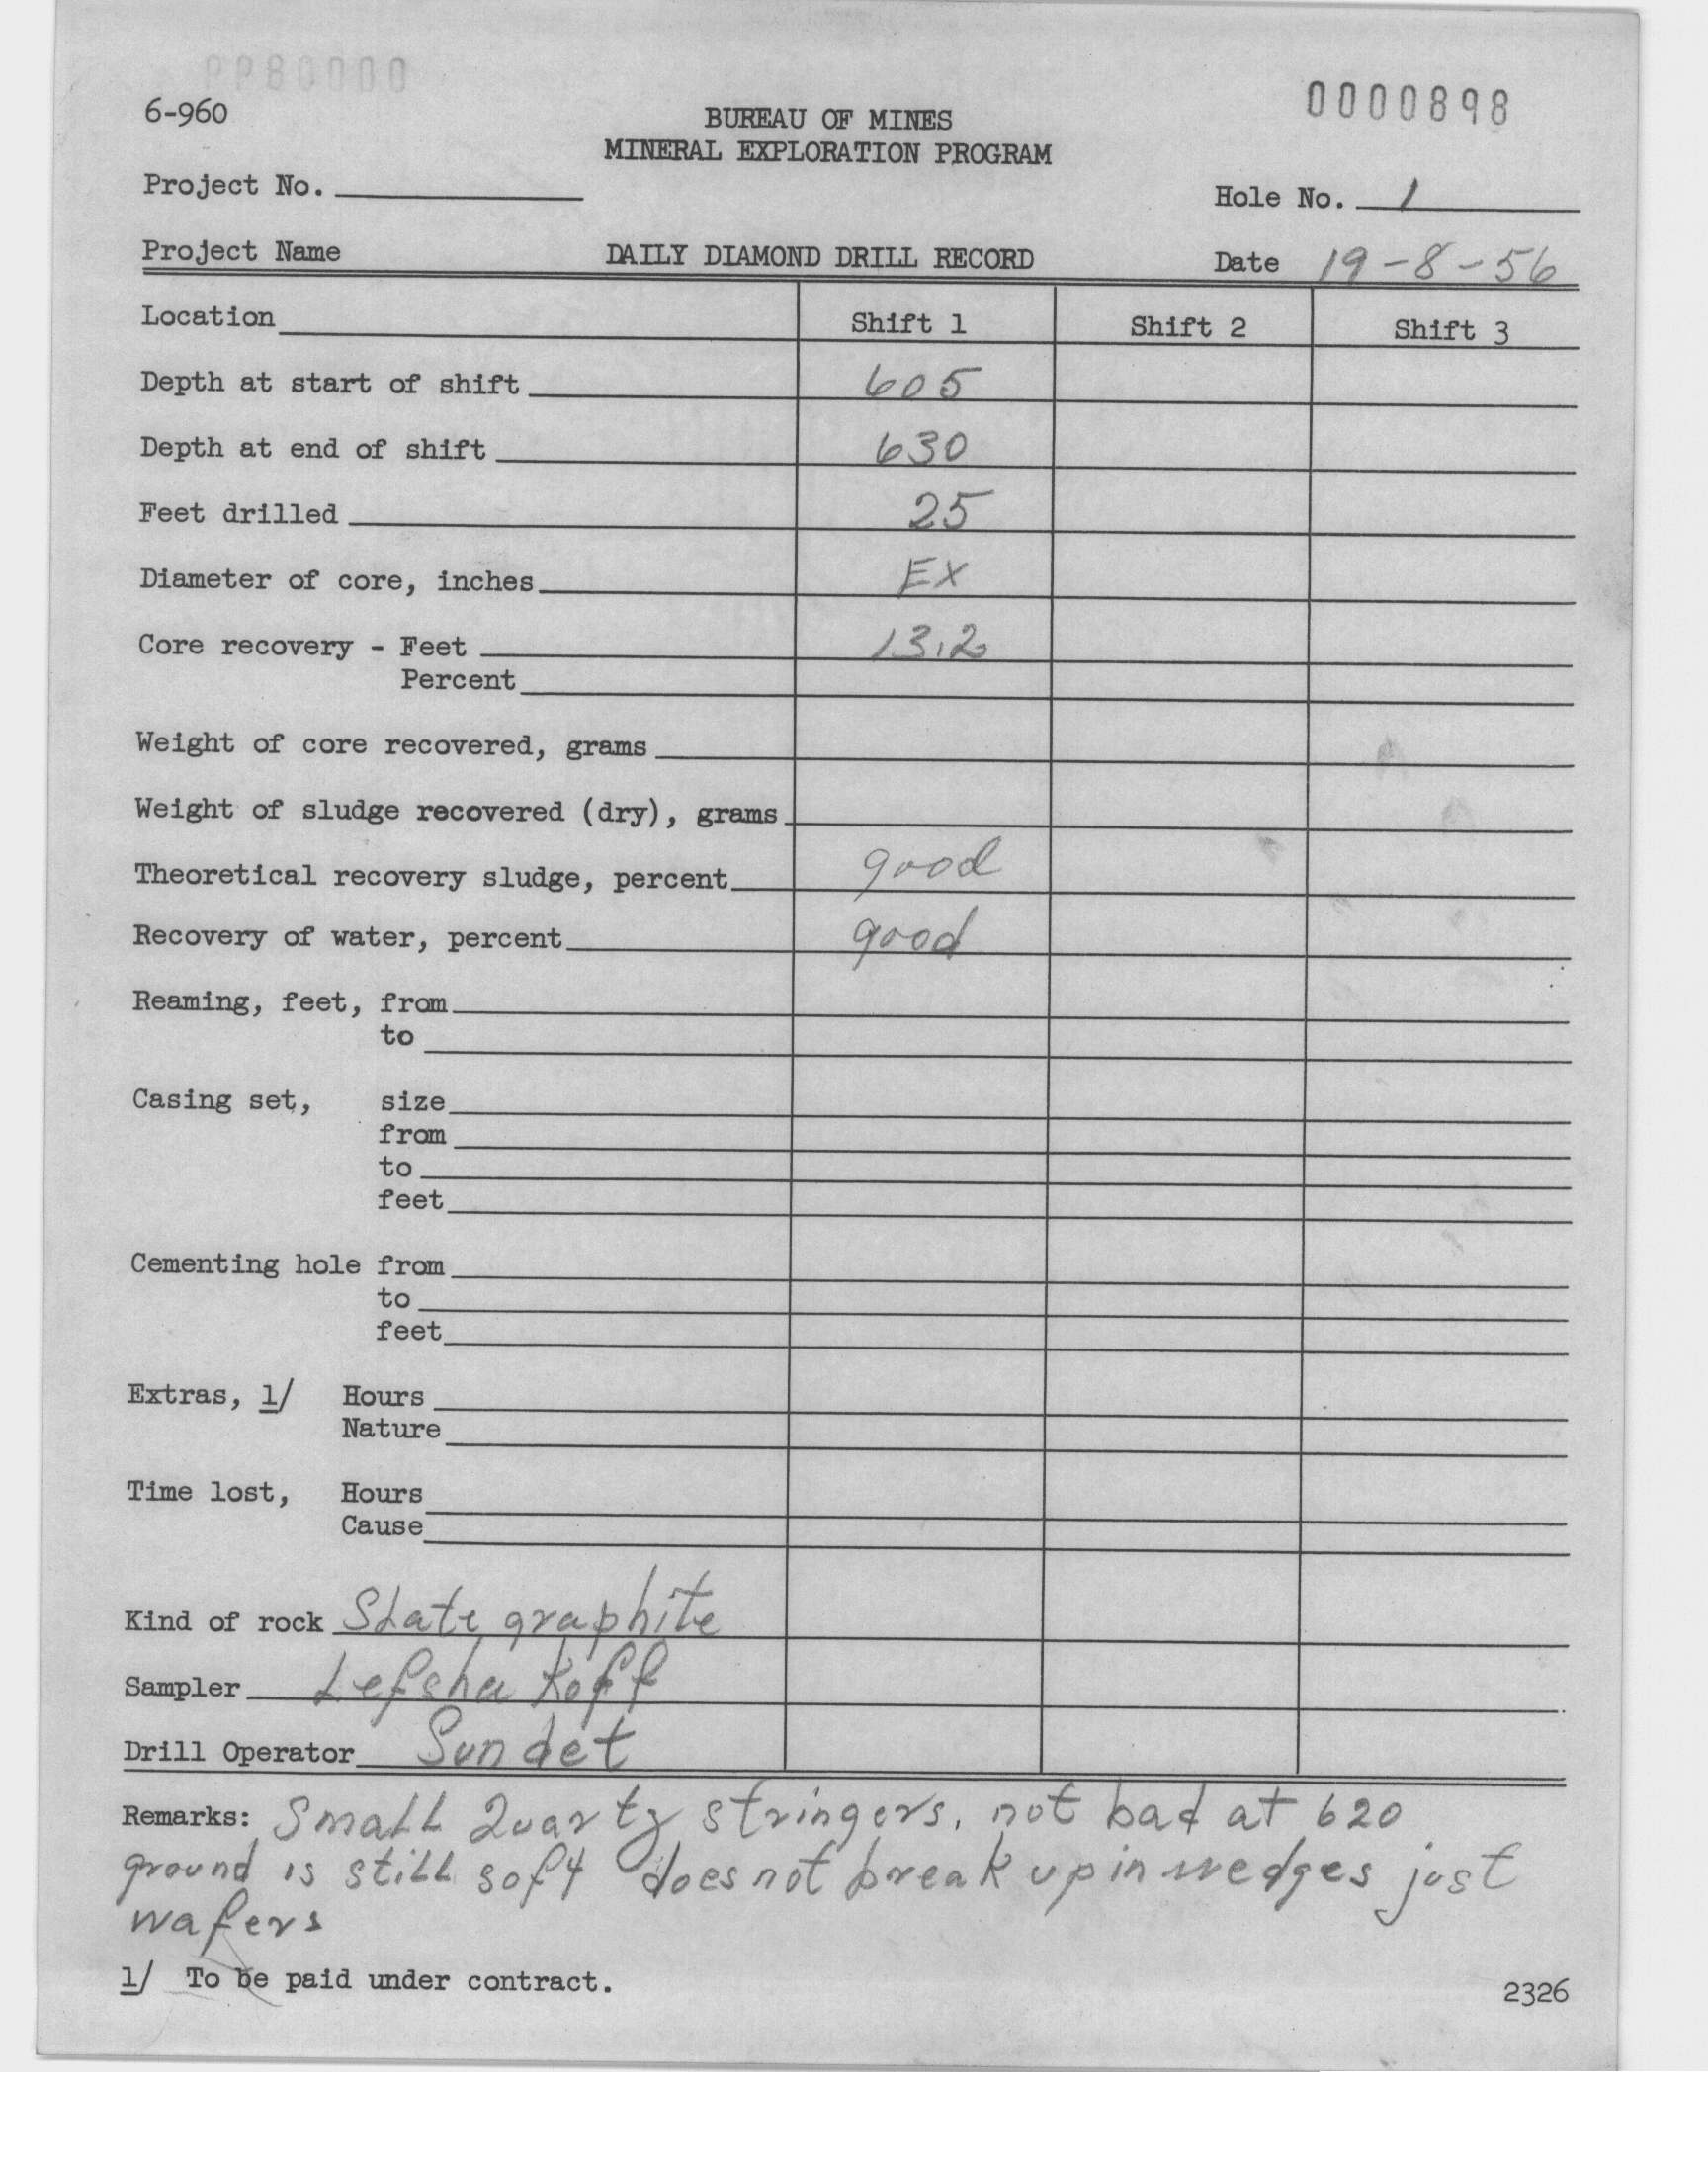 6-960
0000898
BUREAU OF MINES
MINERAL EXPLORATION PROGRAM
Project No.
Hole No. 1
Project Name
DAILY DIAMOND DRILL RECORD
Date 19-8-56
Location Shift 1 Shift 2 Shift 3
Depth at start of shift 605
Depth at end of shift 630
Feet drilled 25
Diameter of core, inches EX
Core recovery - Feet 13.2
Percent
Weight of core recovered, grams
Weight of sludge recovered (dry), grams
Theoretical recovery sludge, percent good
Recovery of water, percent good
Reaming, feet, from
to
Casing set, size
from
to
feet
Cementing hole from
to
feet
Extras, 1/ Hours
Nature
Time lost, Hours
Cause
Kind of rock Slate graphite
Sampler Lefsha Koff
Drill Operator Sundet
Remarks: Small Quartz stringers, not bad at 620
ground is still soft does not break up in wedges just
wafers
1/ To be paid under contract.
2326